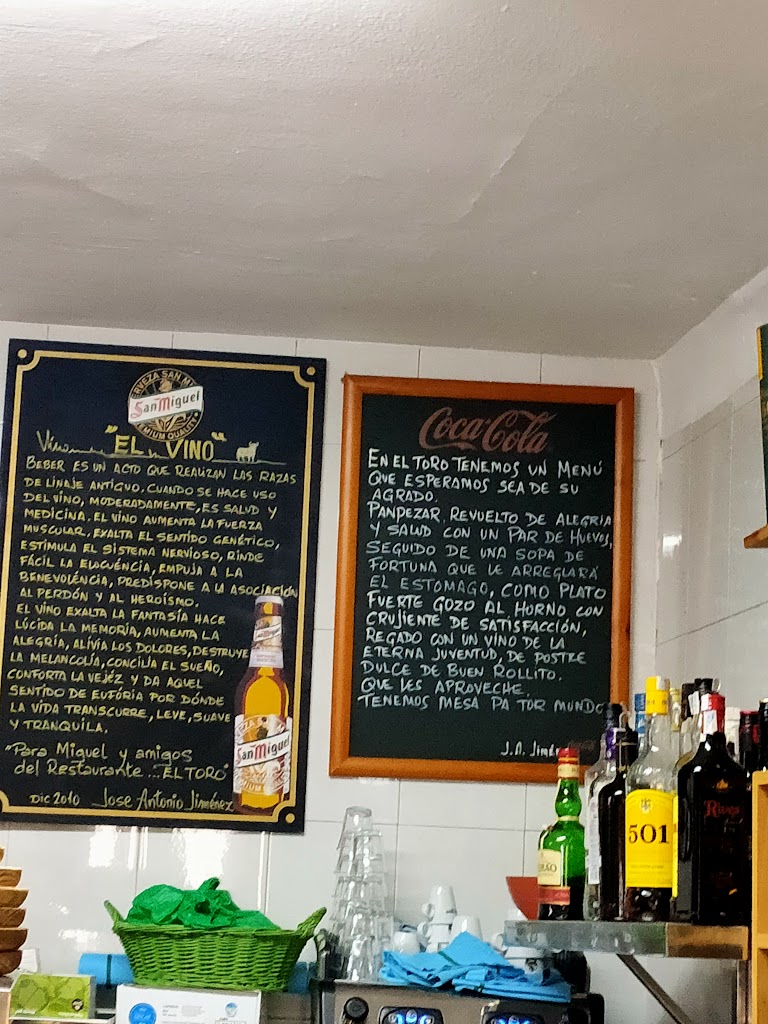 CERVEZA SAN MI
San Miguel
PREMIUM QUALITY
"EL VINO"
BEBER ES UN ACTO QUE REALIZAN LAS RAZAS
DE LINAJE ANTIGUO. CUANDO SE HACE USO
DEL VINO, MODERADAMENTE, ES SALUD Y
MEDICINA. EL VINO AUMENTA LA FUERZA
MUSCULAR, EXALTA EL SENTIDO GENÉTICO,
ESTIMULA EL SISTEMA NERVIOSO, RINDE
FÁCIL LA ELOCUÉNCIA, EMPUJA A LA
BENEVOLÉNCIA, PREDISPONE A LA ASOCIACIÓN
AL PERDÓN Y AL HEROÍSMO.
EL VINO EXALTA LA FANTASÍA HACE
LÚCIDA LA MEMORIA, AUMENTA LA
ALEGRÍA, ALIVIA LOS DOLORES, DESTRUYE
LA MELANCOLÍA, CONCILIA EL SUEÑO,
CONFORTA LA VEJÉZ Y DA AQUEL
SENTIDO DE EUFÓRIA POR DÓNDE
LA VIDA TRANSCURRE, LEVE, SUAVE
Y TRANQUILA.
"Para Miguel y amigos
del Restaurante... EL TORO"
DIC 2010 Jose Antonio Jiménez
San Miguel
Coca-Cola
EN EL TORO TENEMOS UN MENÚ
QUE ESPERAMOS SEA DE SU
AGRADO.
PANPEZAR, REVUELTO DE ALEGRIA
Y SALUD CON UN PAR DE HUEVOS,
SEGUIDO DE UNA SOPA DE
FORTUNA QUE LE ARREGLARÁ
EL ESTOMAGO, COMO PLATO
FUERTE GOZO AL HORNO CON
CRUJIENTE DE SATISFACCIÓN,
REGADO CON UN VINO DE LA
ETERNA JUVENTUD, DE POSTRE
DULCE DE BUEN ROLLITO.
QUE LES APROVECHE.
TENEMOS MESA PA TOR MUNDO
J.A. Jimén
501
Rives